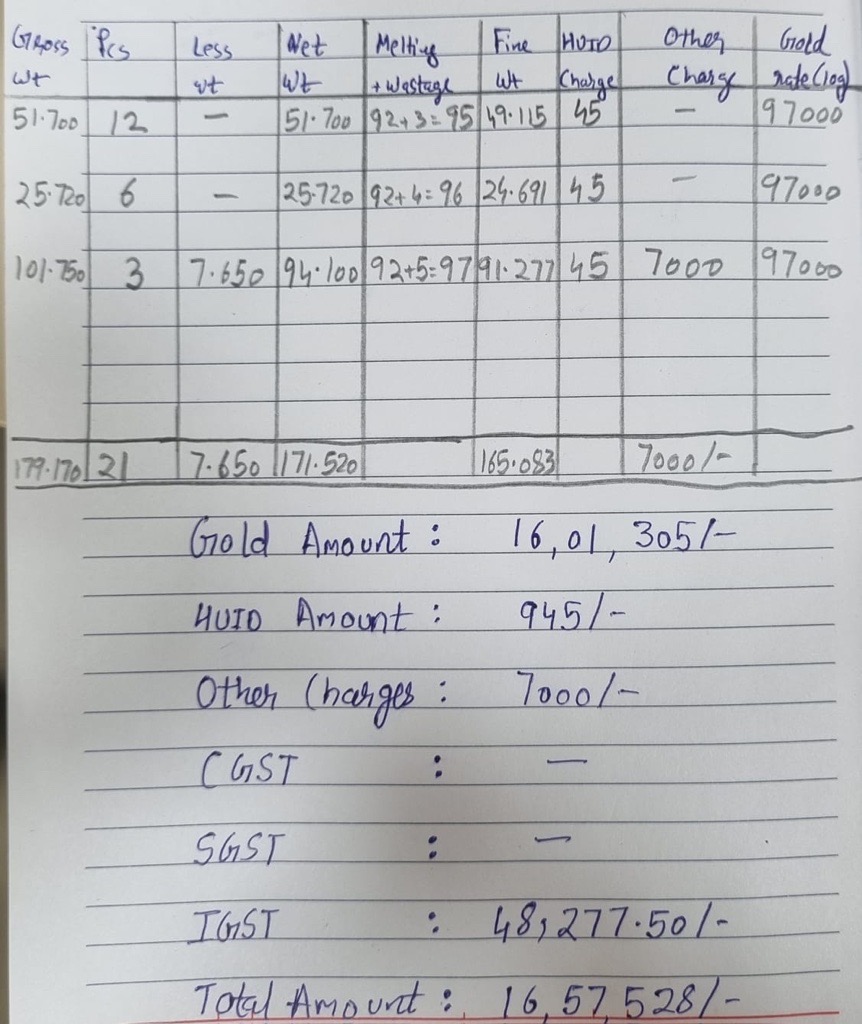 Gross Wt Pcs Less wt Net Wt Melting + Wastage Fine Wt HUID Charge Other Charge Gold rate (10g)
51.700 12 — 51.700 92+3=95 49.115 45 — 97000
25.720 6 — 25.720 92+4=96 24.691 45 — 97000
101.750 3 7.650 94.100 92+5=97 91.277 45 7000 97000
179.170 21 7.650 171.520 165.083 7000/-
Gold Amount : 16,01,305/-
HUID Amount : 945/-
Other Charges : 7000/-
CGST : —
SGST : —
IGST : 48,277.50/-
Total Amount : 16,57,528/-